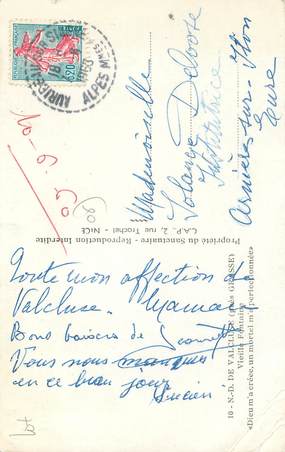 Toute mon affection de
Valcluse. Maman
Bons baisers de
Vous nous manquez
en ce beau jour
Lucien
Mademoiselle
Solange Delvore
Institutrice
Asnières-sur-Iton
Eure
10-6-60
(06)
0,20
AURIBEAU
ALPES MMES
1960
10 - N.-D. DE VALCLUSE (près GRASSE)
Vieille Fontaine
«Dieu m'a créée, un mortel m'a perfectionnée»
Propriété du Sanctuaire - Reproduction Interdite
C.A.P., 2, rue Trachel - NICE